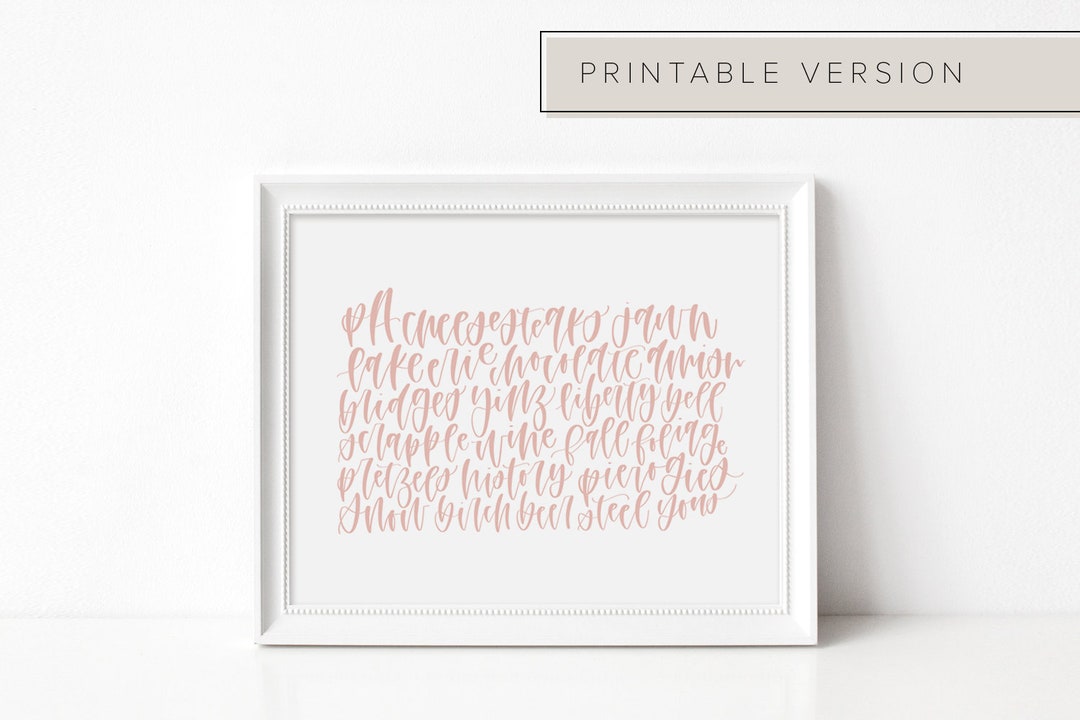 PRINTABLE VERSION
PA cheesesteaks jawn
lake erie chocolate amish
bridges yinz liberty bell
scrapple wine fall foliage
pretzels history pierogies
snow birch beer steel yous